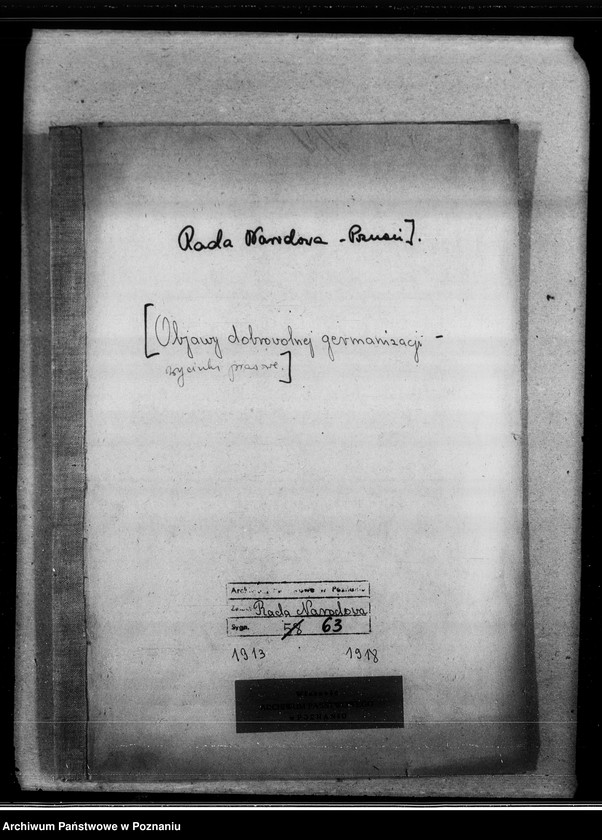 Rada Narodowa -
[Objawy dobrowolnej germanizacji -
wycinki prasowe.]
Archiwum Państwowe w Poznaniu
Rada Narodowa
Sygn. 58 63
1913 1918
Archiwum Państwowe w Poznaniu